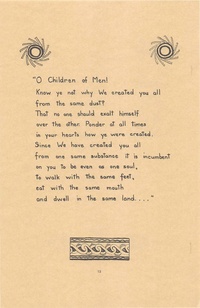 "O Children of Men!
Know ye not why We created you all
from the same dust?
That no one should exalt himself
over the other. Ponder at all times
in your hearts how ye were created.
Since We have created you all
from one same substance it is incumbent
on you to be even as one soul,
to walk with the same feet,
eat with the same mouth
and dwell in the same land...."